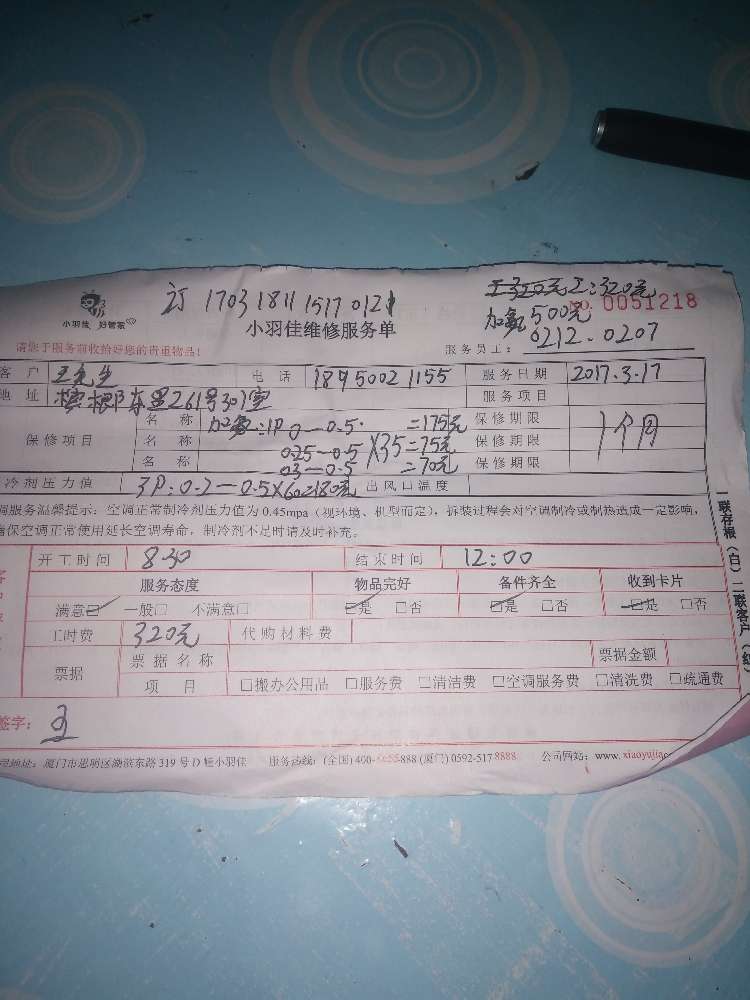 订 1703181115170121
工:320元
加氟500元
NO. 0051218
小羽佳 好管家
小羽佳维修服务单
请您于服务前收拾好您的贵重物品!
服务员工: 0212.0207
客 户 王先生 电 话 18950021155 服务日期 2017.3.17
地 址 东里261号301室 服务项目
保修项目 名 称 加氟:1P 0—0.5 =175元 保修期限 1个月
名 称 0.25—0.5 X35=75元 保修期限
名 称 0.3—0.5 =70元 保修期限
冷剂压力值 3P:0.2—0.5X60=180元 出风口温度
调服务温馨提示: 空调正常制冷剂压力值为 0.45mpa (视环境、机型而定), 拆装过程会对空调制冷或制热造成一定影响,
确保空调正常使用延长空调寿命, 制冷剂不足时请及时补充。
开工时间 8:30 结束时间 12:00
服务态度 物品完好 备件齐全 收到卡片
满意☑ 一般□ 不满意□ ☑是 □否 ☑是 □否 ☑是 □否
工时费 320元 代购材料费
票据 票据名称 票据金额
项 目 □搬办公用品 □服务费 □清洁费 □空调服务费 □清洗费 □疏通费
签字: 王
地址: 厦门市思明区湖滨东路 319 号 D 幢小羽佳 服务热线: (全国) 400- 888 (厦门) 0592-517 8888 公司网站: www. xiaoyujia
一联存根(白) 二联客户(红)